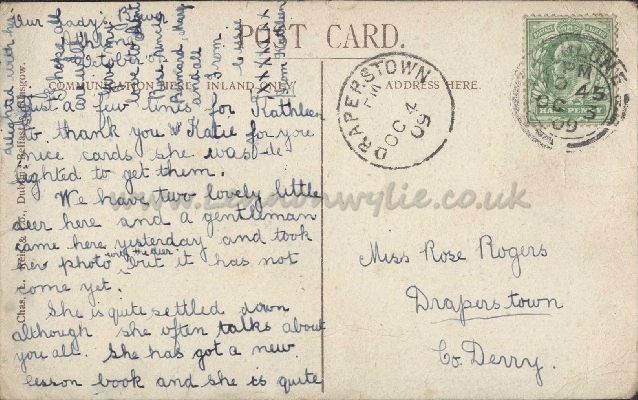 POST CARD.
INLAND ONLY
ADDRESS HERE.
Our Lady's Bower
Athlone
Just a few lines for Kathleen
to thank you & Katie for your
nice cards she was de
lighted to get them.
We have two lovely little
deer here and a gentleman
came here yesterday and took
her photo with the deer but it has not
come yet.
She is quite settled down
although she often talks about
you all. She has got a new
lesson book and she is quite
delighted with her
I hope all
are well
love to
and all
From
Susie
XXXXXXX
from Kathleen
Miss Rose Rogers
Draperstown
Co. Derry.
DRAPERSTOWN
PM
OC 4
09
ATHLONE
PM
6 45
OC 3
09
www.londonwylie.co.uk